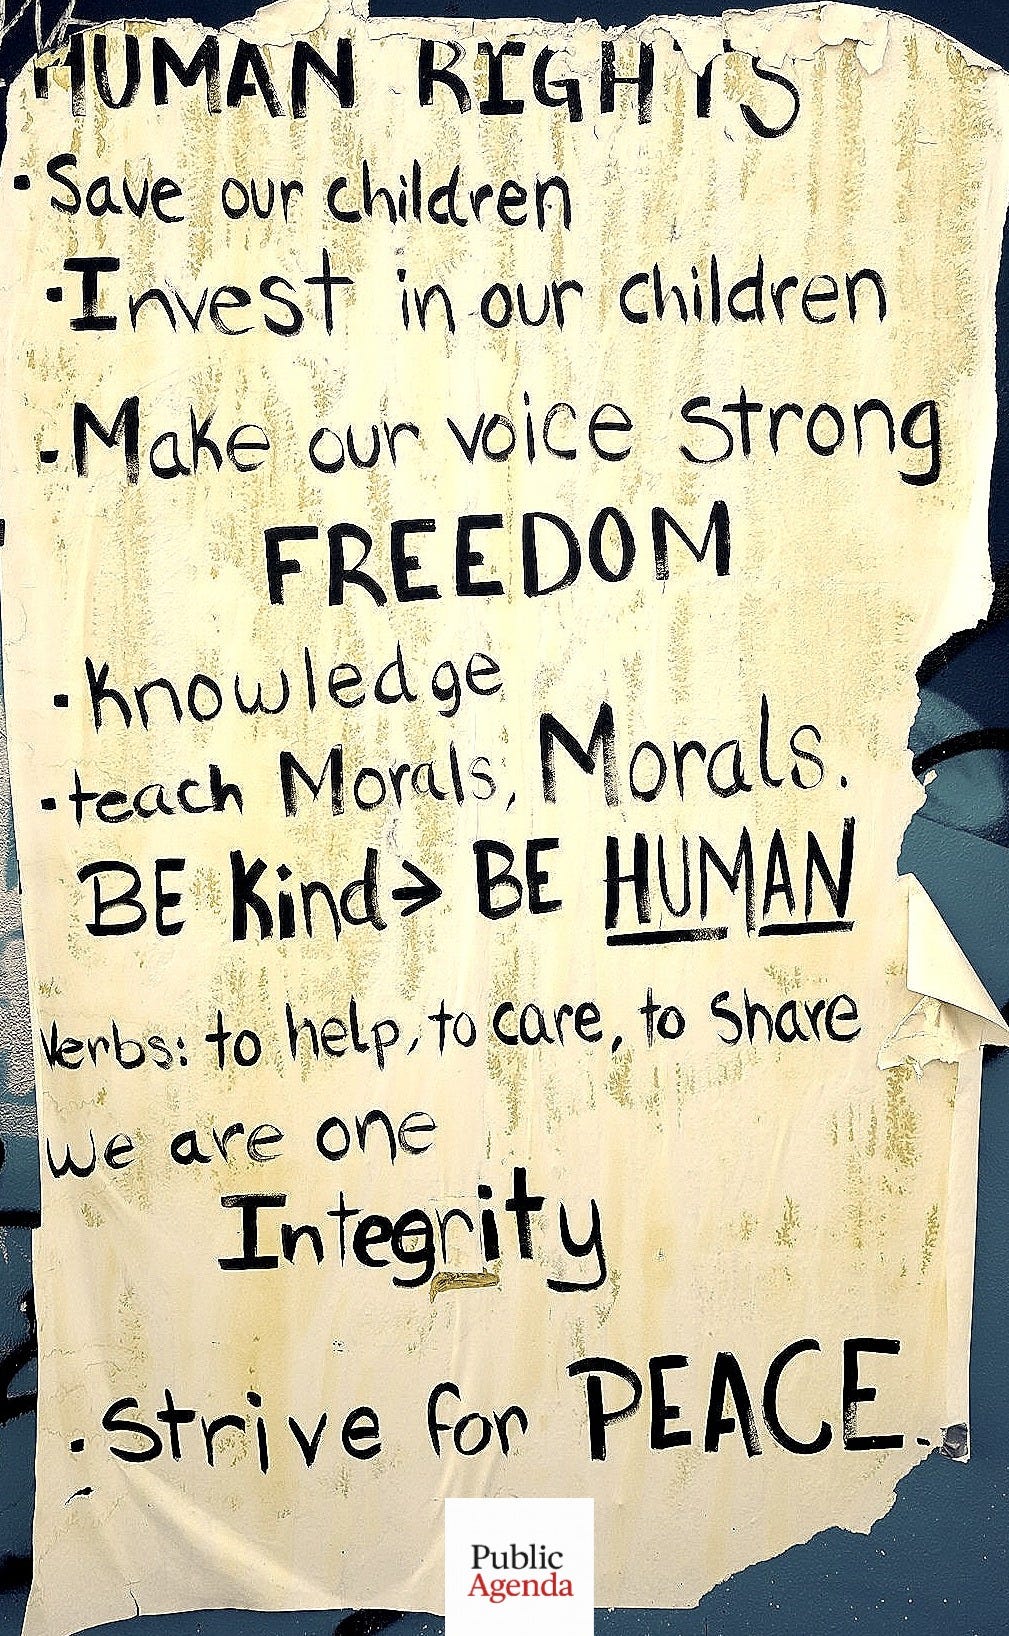 HUMAN RIGHTS
•Save our children
•Invest in our children
•Make our voice strong
FREEDOM
•Knowledge
•teach Morals, Morals.
BE Kind→ BE HUMAN
Verbs: to help, to care, to share
We are one
Integrity
•Strive for PEACE.
Public
Agenda